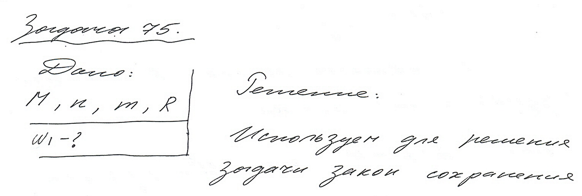 Задача 75.
Дано:
M, n, m, R
ω₁ - ?
Решение:
Используем для решения
задачи закон сохранения